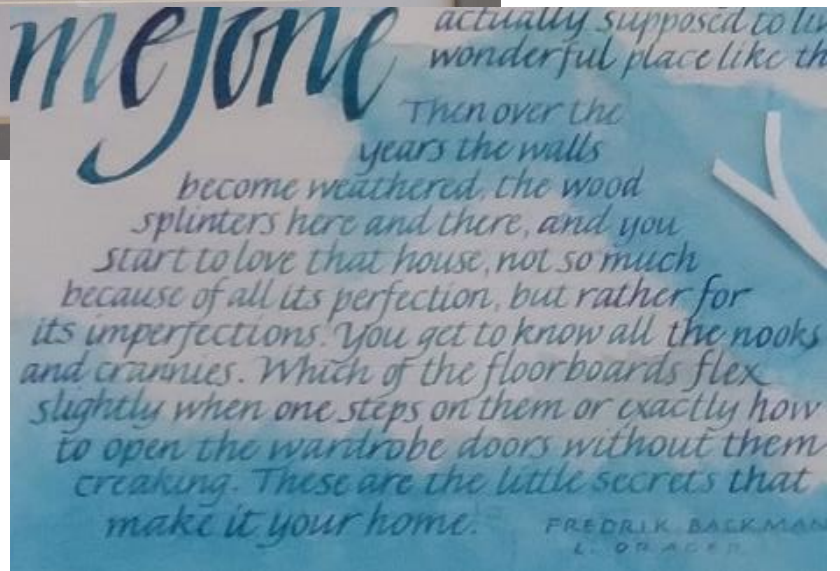 meone
actually supposed to liv
wonderful place like th
Then over the
years the walls
become weathered, the wood
splinters here and there, and you
start to love that house, not so much
because of all its perfection, but rather for
its imperfections. You get to know all the nooks
and crannies. Which of the floorboards flex
slightly when one steps on them or exactly how
to open the wardrobe doors without them
creaking. These are the little secrets that
make it your home.
FREDRIK BACKMAN